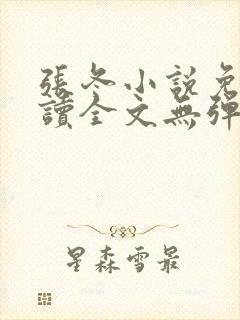 張冬小說免
讀全文無彈
星森雪最